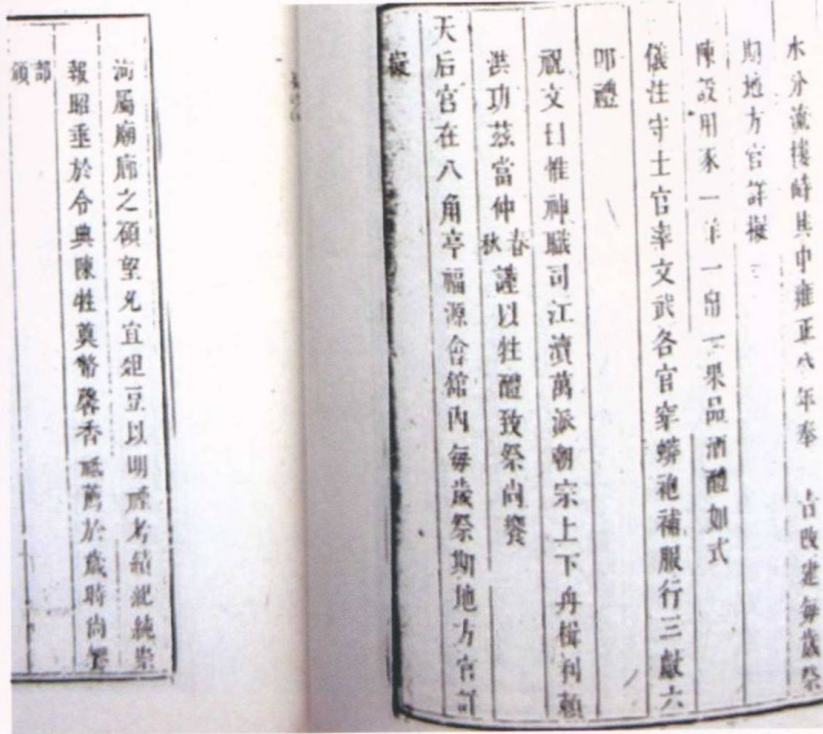 水分流樓峙其中雍正八年奉　旨改建每歲祭
期地方官詳擬
陳設用豕一羊一帛一果品酒醴如式
儀注守土官率文武各官穿蟒袍補服行三獻六
叩禮
祝文曰惟神職司江瀆萬派朝宗上下舟楫利賴
洪功茲當仲春秋謹以牲醴致祭尚饗
天后宮在八角亭福源會館內每歲祭期地方官詳
擬
洵屬廟廊之碩望允宜俎豆以明禋考績紀純崇
報昭垂於令典陳牲奠幣馨香祗薦於歲時尚饗
部
頒